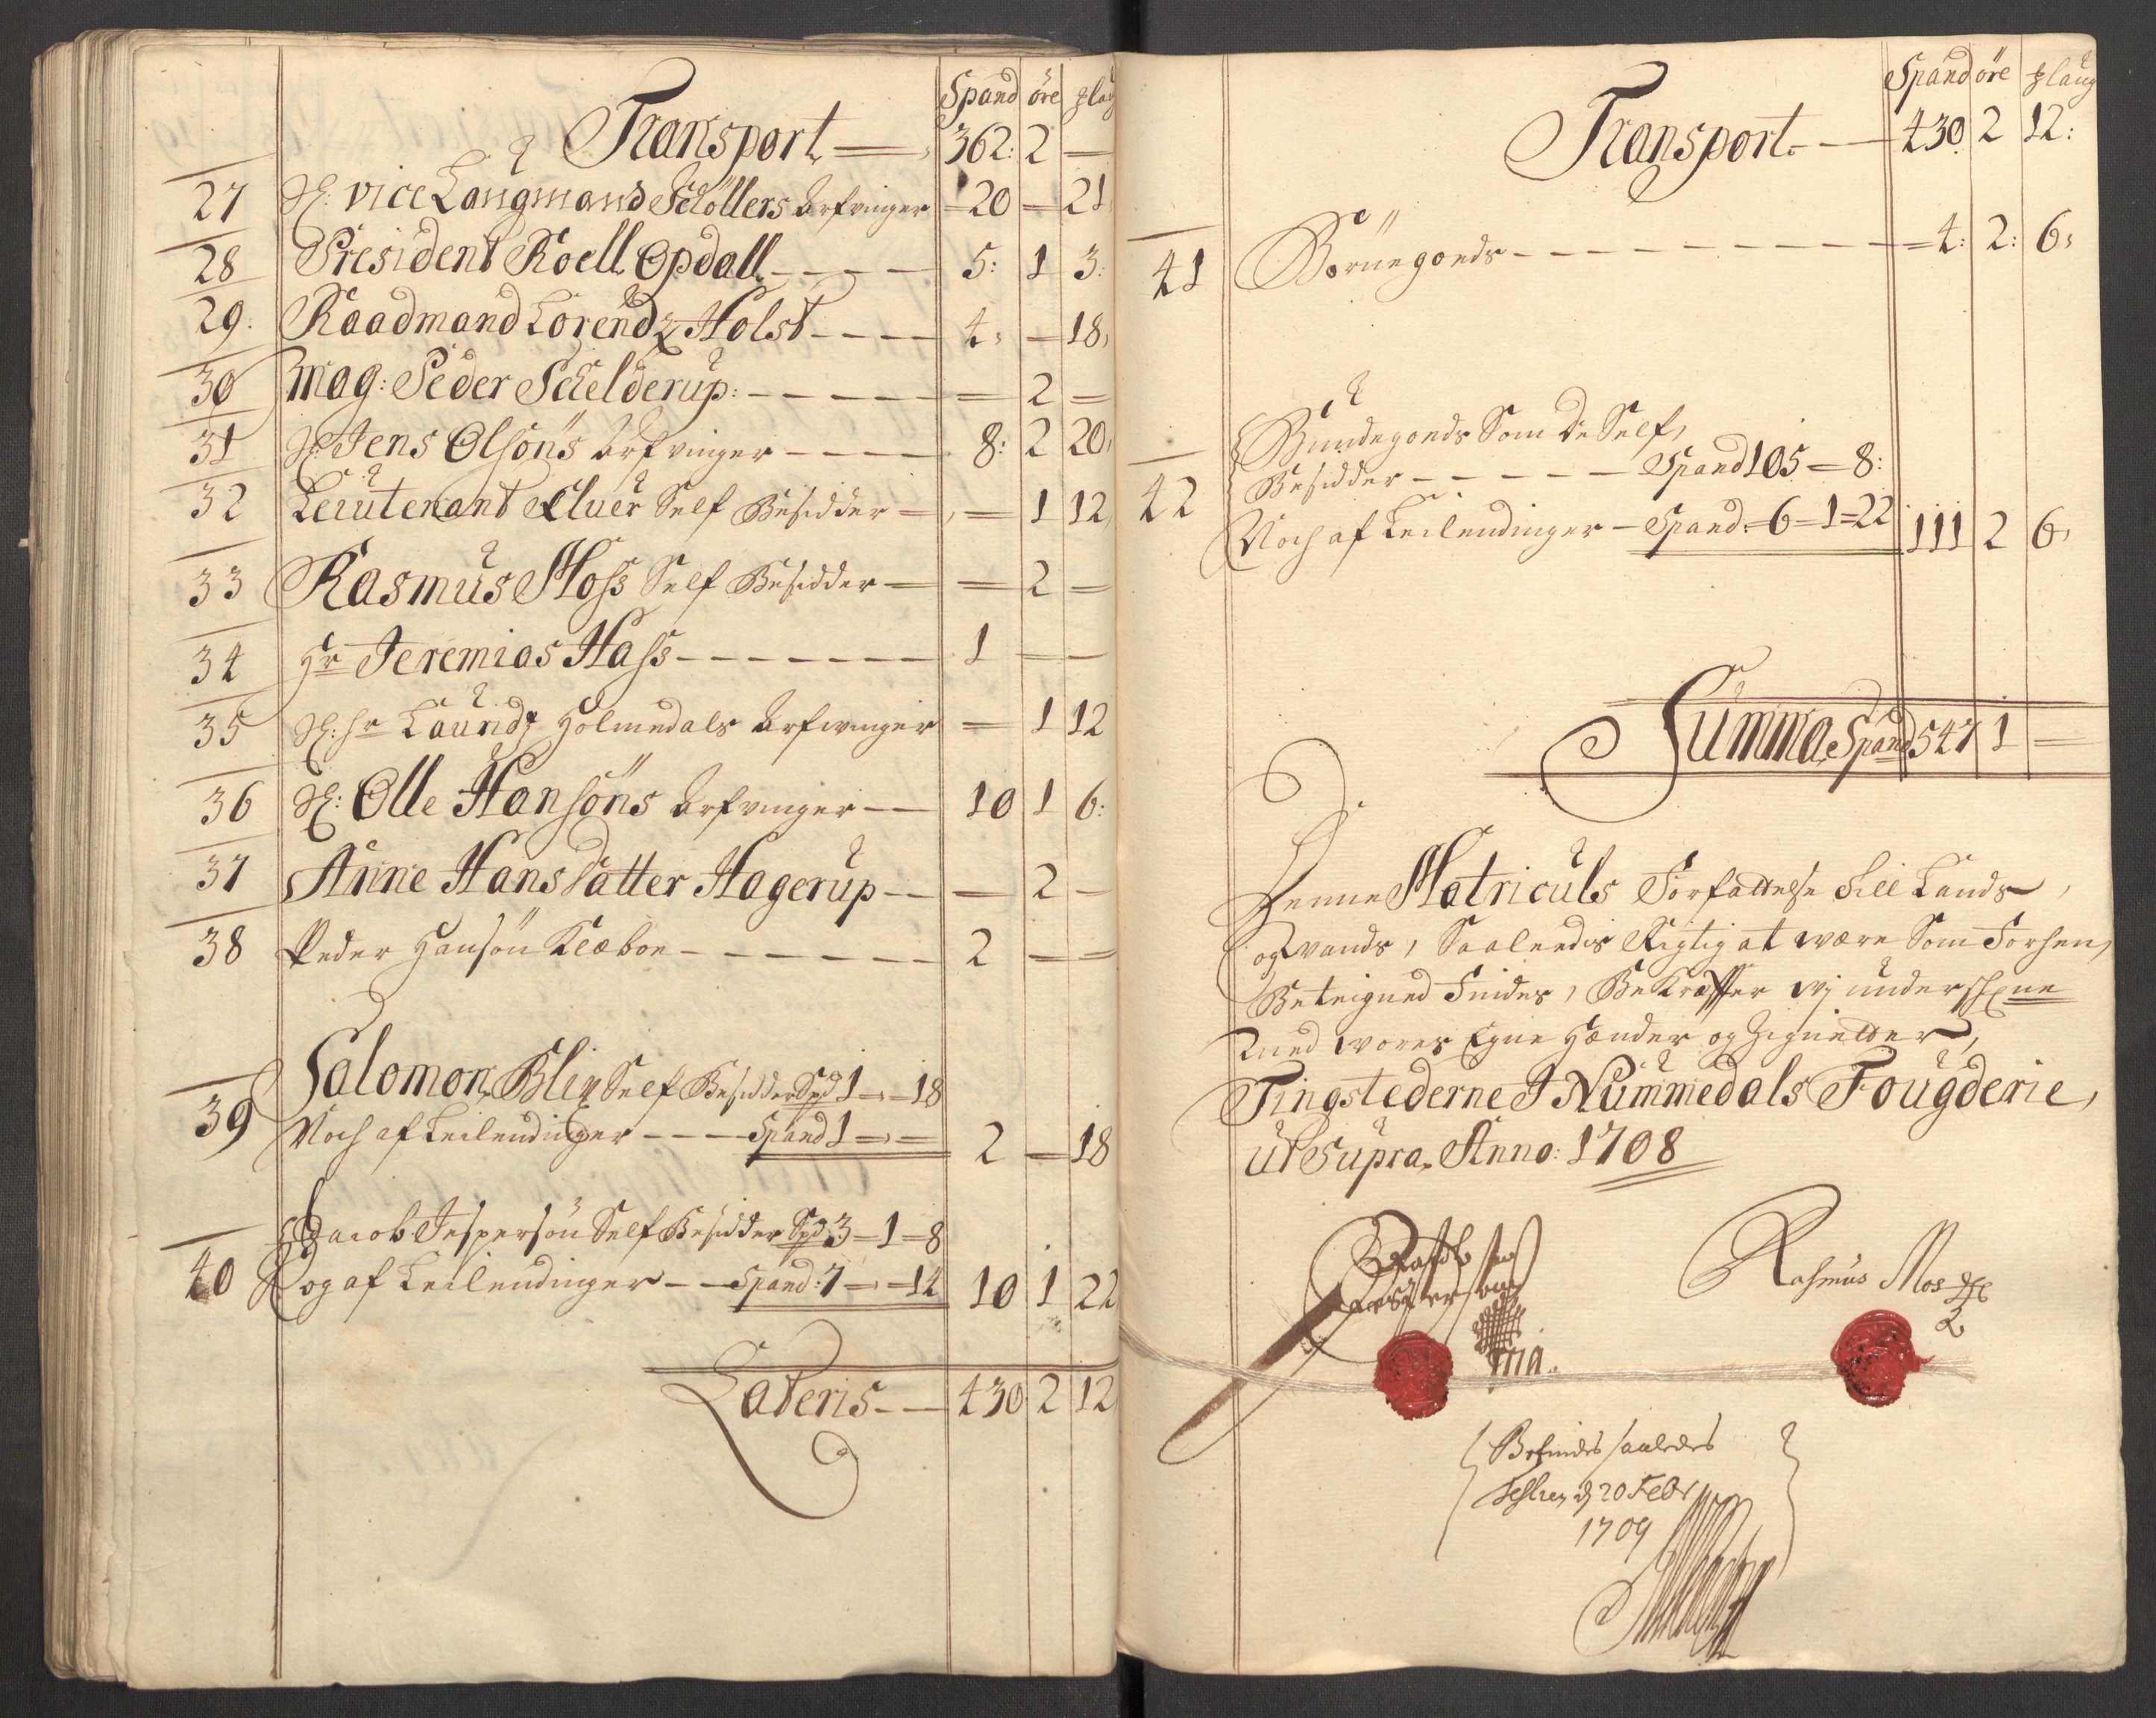 Spand öre
Transport 362: 2 —
27 Sl: vice Laugmand Schöllers Arfvinger 20 — 21
28 President Roell Opdall 5: 1 3:
29. Raadmand Lorendz Holst 4: — 18,
30 Mag: Peder Schelderup: — 2 —
31 Sl: Jens Olsöns Arfvinger 8: 2 20,
32 Leiutenant Eluer Self Besidder — 1 12
33 Rasmus Moss Self Besidder — 2 —
34 Hr Jeremias Hass 1 — —
35 Sl: Hr Laundz Holmedals Arfvinger — 1 12
36 Sl: Olle Hansöns Arfvinger 10 1 6:
37 Anne Hansdatter Hagerup — 2 —
38 Peder Hansön Klæboe 2 — —
Salomon Blix Self Besidder Spd 1 — 18
39 Noch af Leilendinger Spand 1 — — 2 — 18
Jacob Jespersön Self Besidder Spd 3 — 1 — 8
40 og af Leilendinger Spand: 7 — 14 10 1 22
Lateris 430 2 12
Spand öre
Transport 430 2 12:
41 Börnegoeds 4: 2: 6:
Bundegoeds Som De Self,
Besidder Spand 105 — 8:
42 Noch af Leilendinger Spand: 6 — 1 — 22 111 2 6,
Summa Spand 547 1 —
Denne Matriculs Forfattelse till Lands
og vands, Saaleedis Rigtig at være Som Forhen,
Beteigned Findes, Bekræffter wj underschrefne
med vores Egne Hænder og Zignetter,
Tingstederne J Nummedals Fougderie,
ut Supra, Anno: 1708
Rasmus Mos
mia.
Befindes saaledes
d 20 Febr
1709